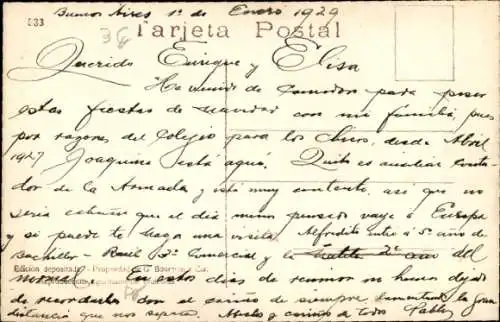 Buenos Aires 1º de Enero 1929
533
36
Tarjeta Postal
Querido Enrique y Elisa
He venido de Comodoro para pasar
estas fiestas de navidad con mi familia, pues
por razones del Colegio para los Chicos, desde Abril
1927 Joaquina está aquí. Quito es auxiliar Conta-
dor de la Armada y está muy contento, así que no
sería extraño que el día menos pensado vaya a Europa
y si puede te haga una visita. Alfredito entró a 5º año de
Bachiller - Raúl 3º Comercial y la 2º año del
Edición deposita - Propiedad de G. Bourquin y Cía.
normal. En estos días de reunión no hemos dejado
de recordarlos con el cariño de siempre la gran
distancia que nos separa. y cariños a todos Pablo